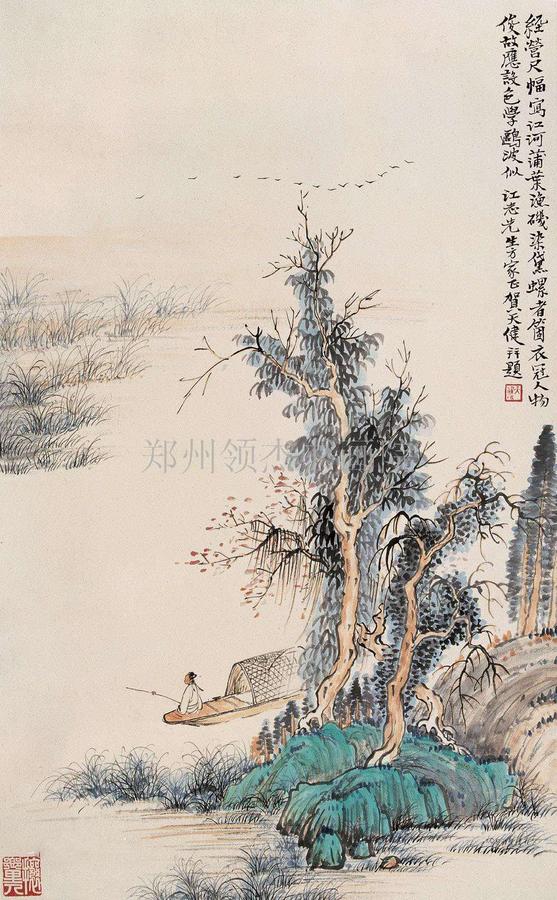 經營尺幅寫江河蒲葉漁磯染黛螺者箇衣冠人物
俊故應設色學鷗波似 江志先生方家正賀天健并題
郑州领杰